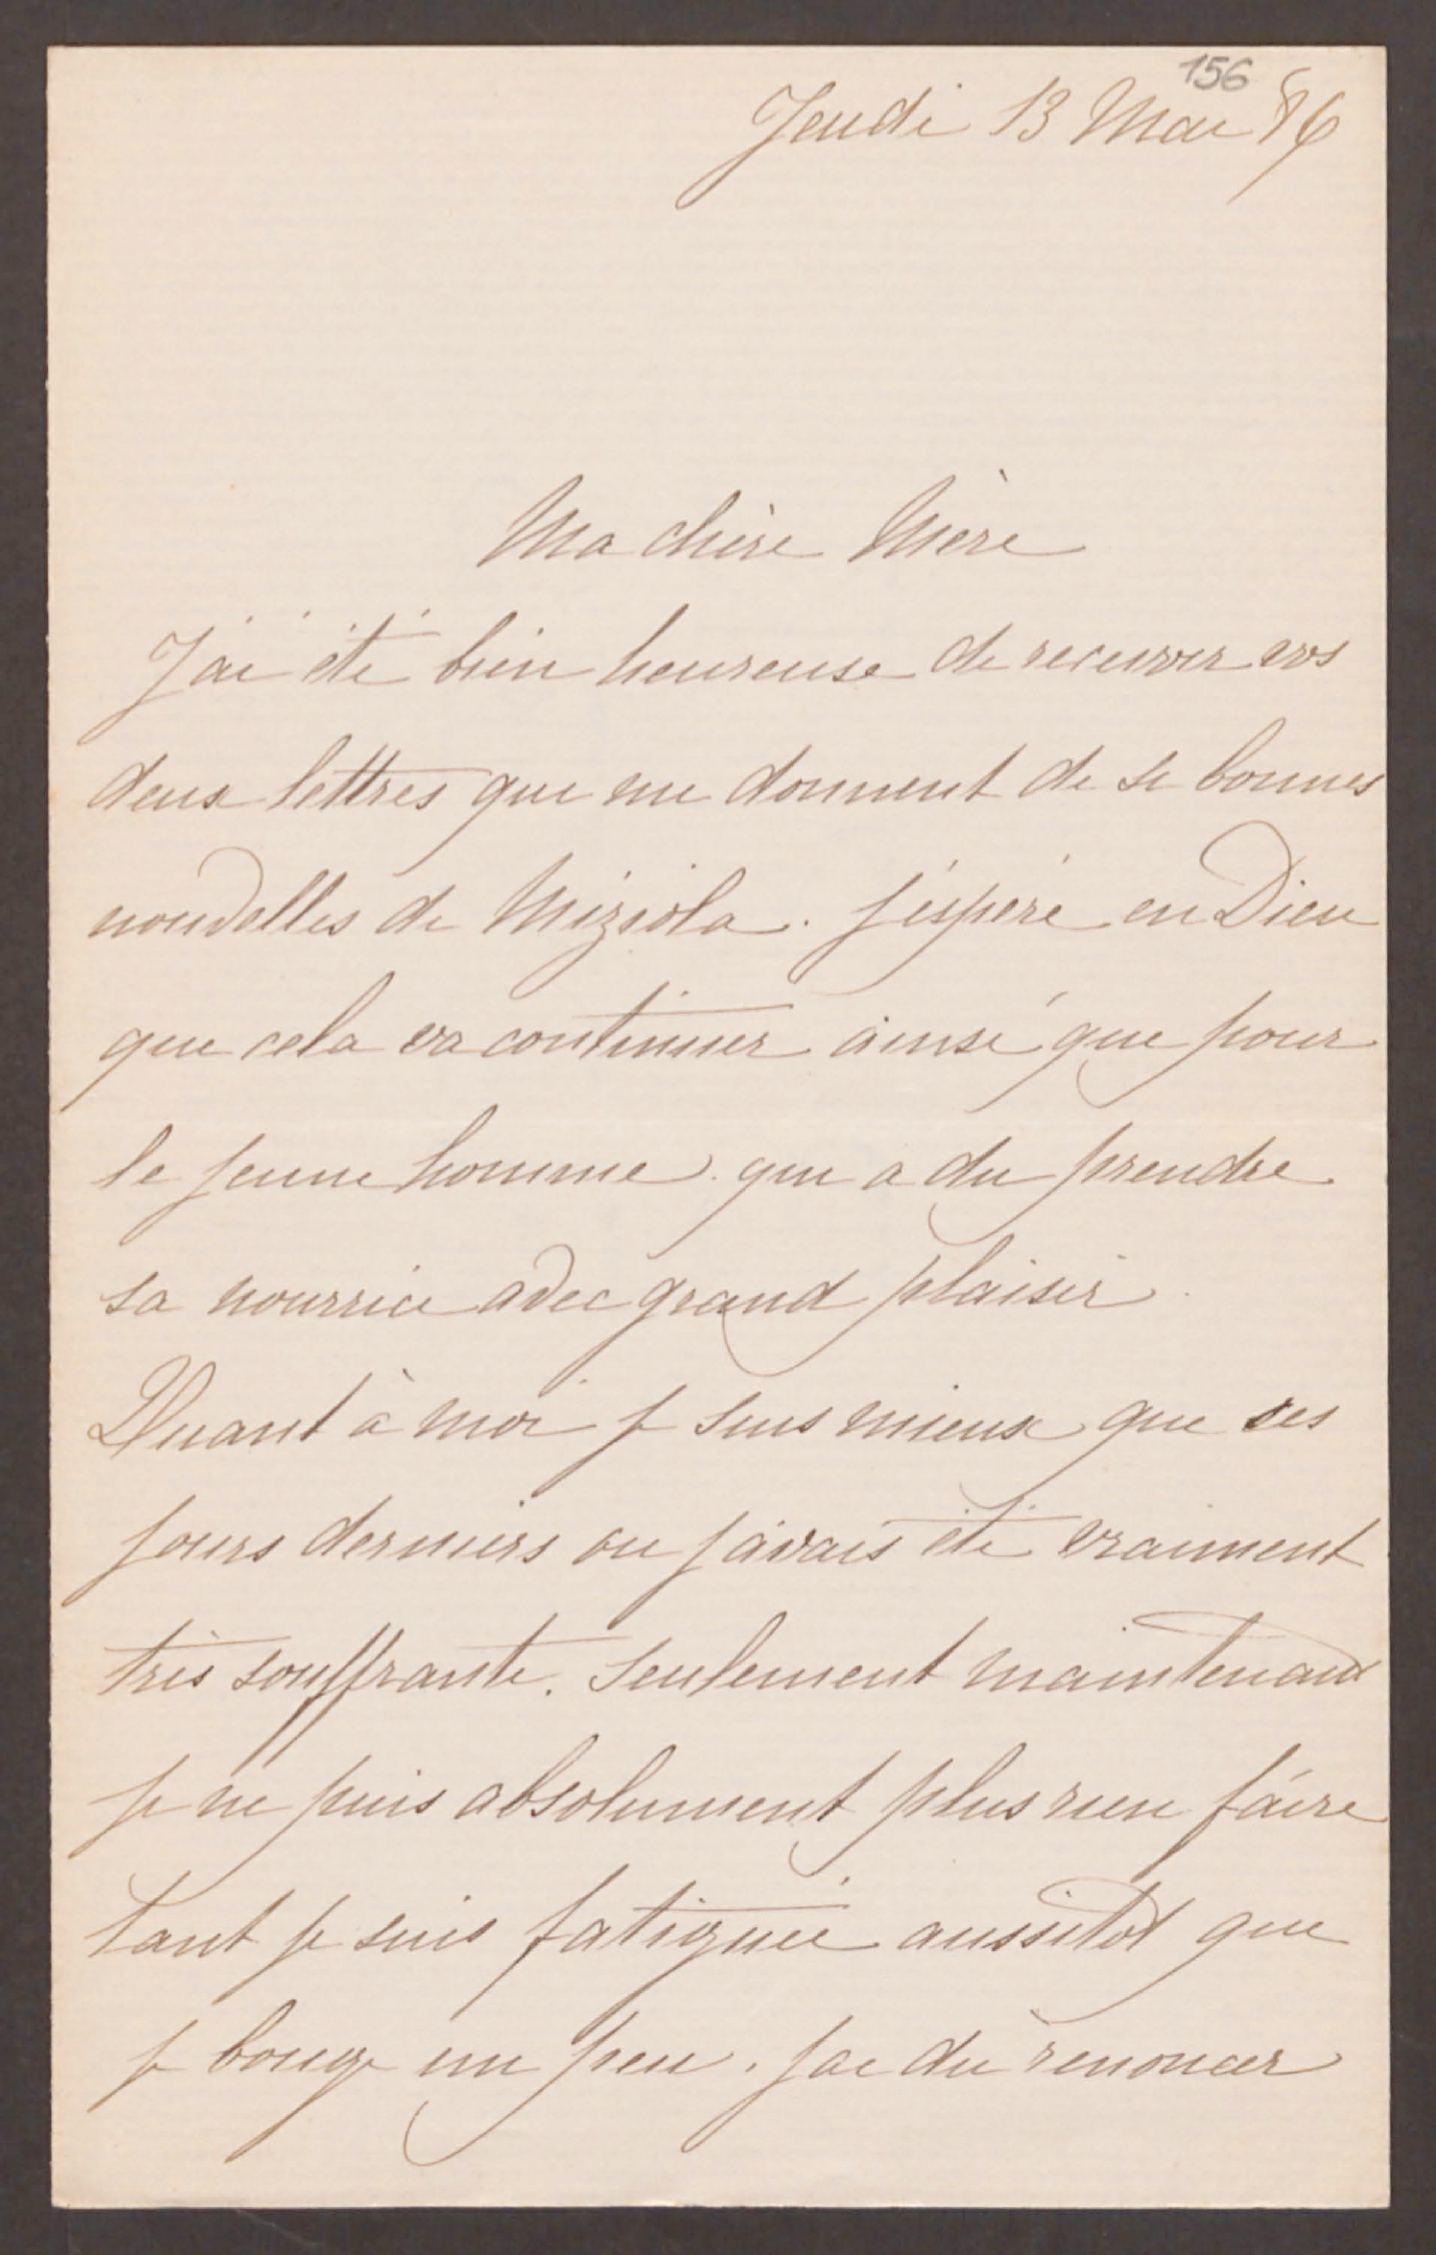 156
Jeudi 13 Mai 86
Ma chère Mère
J'ai été bien heureuse de recevoir vos
deux lettres qui me donnent de si bonnes
nouvelles de Miziola. J'espère en Dieu
que cela va continuer ainsi que pour
le jeune homme qui a du prendre
sa nourrice avec grand plaisir.
Quant à moi je suis mieux que ces
jours derniers ou j'avais été vraiment
très souffrante. Seulement maintenant
je ne puis absolument plus rien faire
tant je suis fatiguée aussitot que
je bouge un peu. J'ai du renoncer